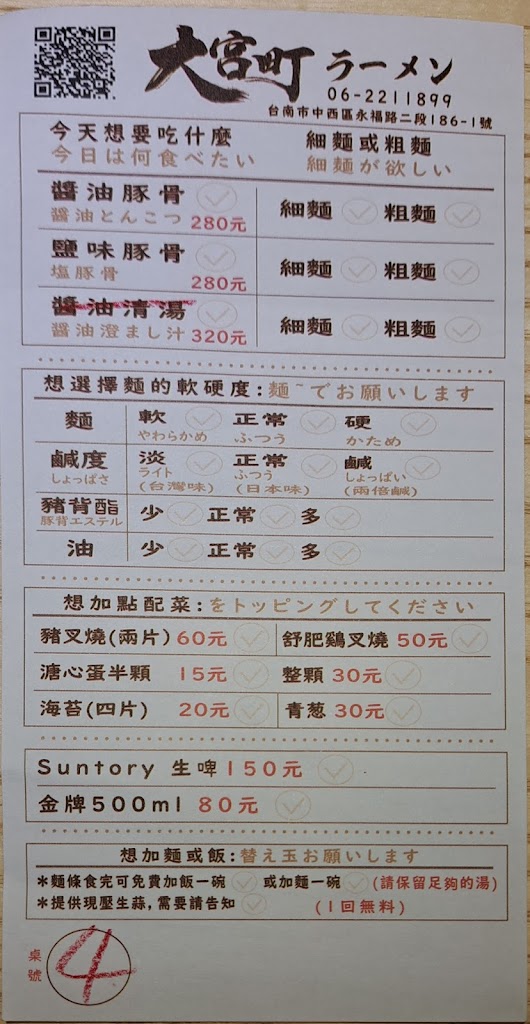 大宮町 ラーメン
06-2211899
台南市中西區永福路二段186-1號
今天想要吃什麼 細麵或粗麵
今日は何食べたい 細麵が欲しい
醬油豚骨
醬油とんこつ 280元 細麵 粗麵
鹽味豚骨
塩豚骨 280元 細麵 粗麵
醬油清湯
醬油澄まし汁 320元 細麵 粗麵
想選擇麵的軟硬度:麵~でお願いします
麵 軟 正常 硬
やわらかめ ふつう かため
鹹度 淡 正常 鹹
しょっぱさ ライト ふつう しょっぱい
(台灣味) (日本味) (兩倍鹹)
豬背酯 少 正常 多
豚背エステル
油 少 正常 多
想加點配菜:をトッピングしてください
豬叉燒(兩片) 60元 舒肥鷄叉燒 50元
溏心蛋半顆 15元 整顆 30元
海苔(四片) 20元 青葱 30元
Suntory 生啤 150元
金牌500ml 80元
想加麵或飯:替え玉お願いします
*麵條食完可免費加飯一碗 或加麵一碗 (請保留足夠的湯)
*提供現壓生蒜,需要請告知 (1回無料)
桌號 4